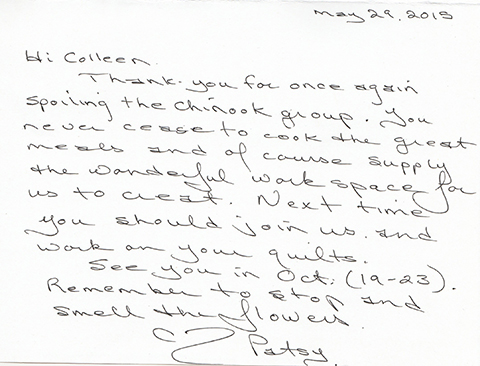 May 29, 2015
Hi Colleen
Thank-you for once again
spoiling the Chinook group. You
never cease to cook the great
meals and of course supply
the wonderful work space for
us to creat. Next time
you should join us and
work on your quilts.
See you in Oct. (19-23).
Remember to stop and
smell the flowers.
Patsy.